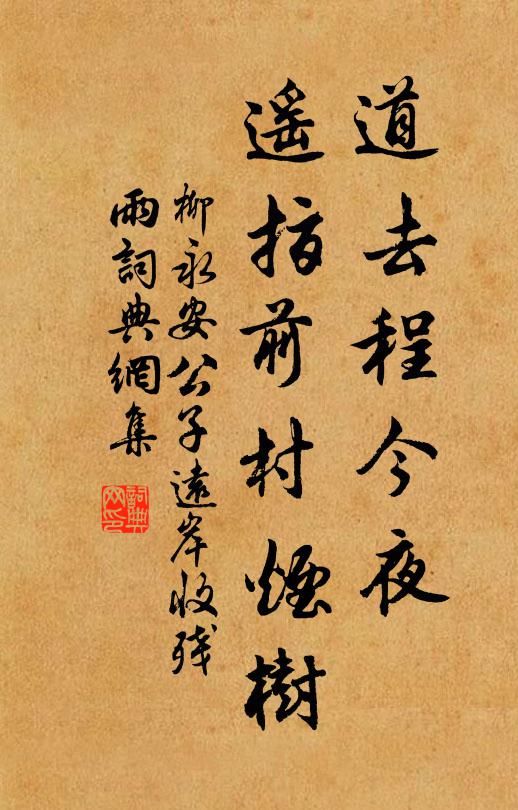 道去程今夜
遥指前村煙樹
柳永安公子遠岸收残
雨詞典網集
詞典
网印